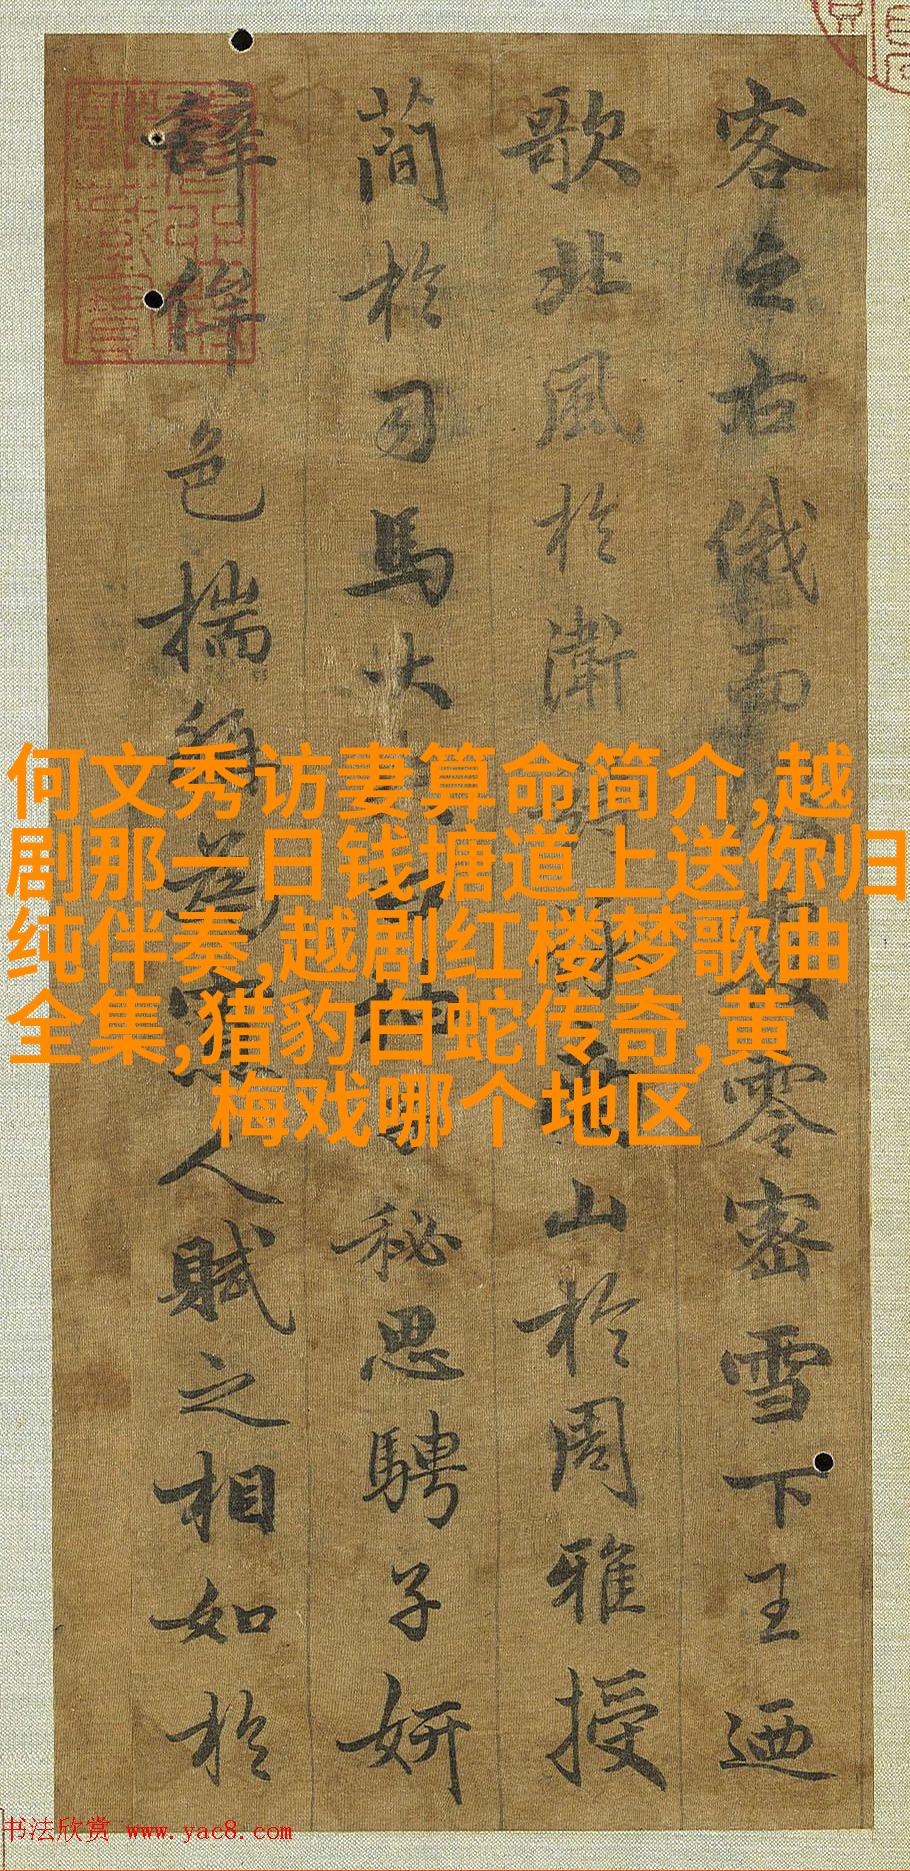 何文秀访妻算命简介,越
剧那一日钱塘道上送你归
纯伴奏,越剧红楼梦歌曲
全集,猎豹白蛇传奇,黄
梅戏哪个地区
客之右俄而零密雪下王迺
歌北風於衛山於周雅授
簡於司馬大秘思騁子妍
辭侔色揣稱人賦之相如於
书法欣赏 www.yac8.com